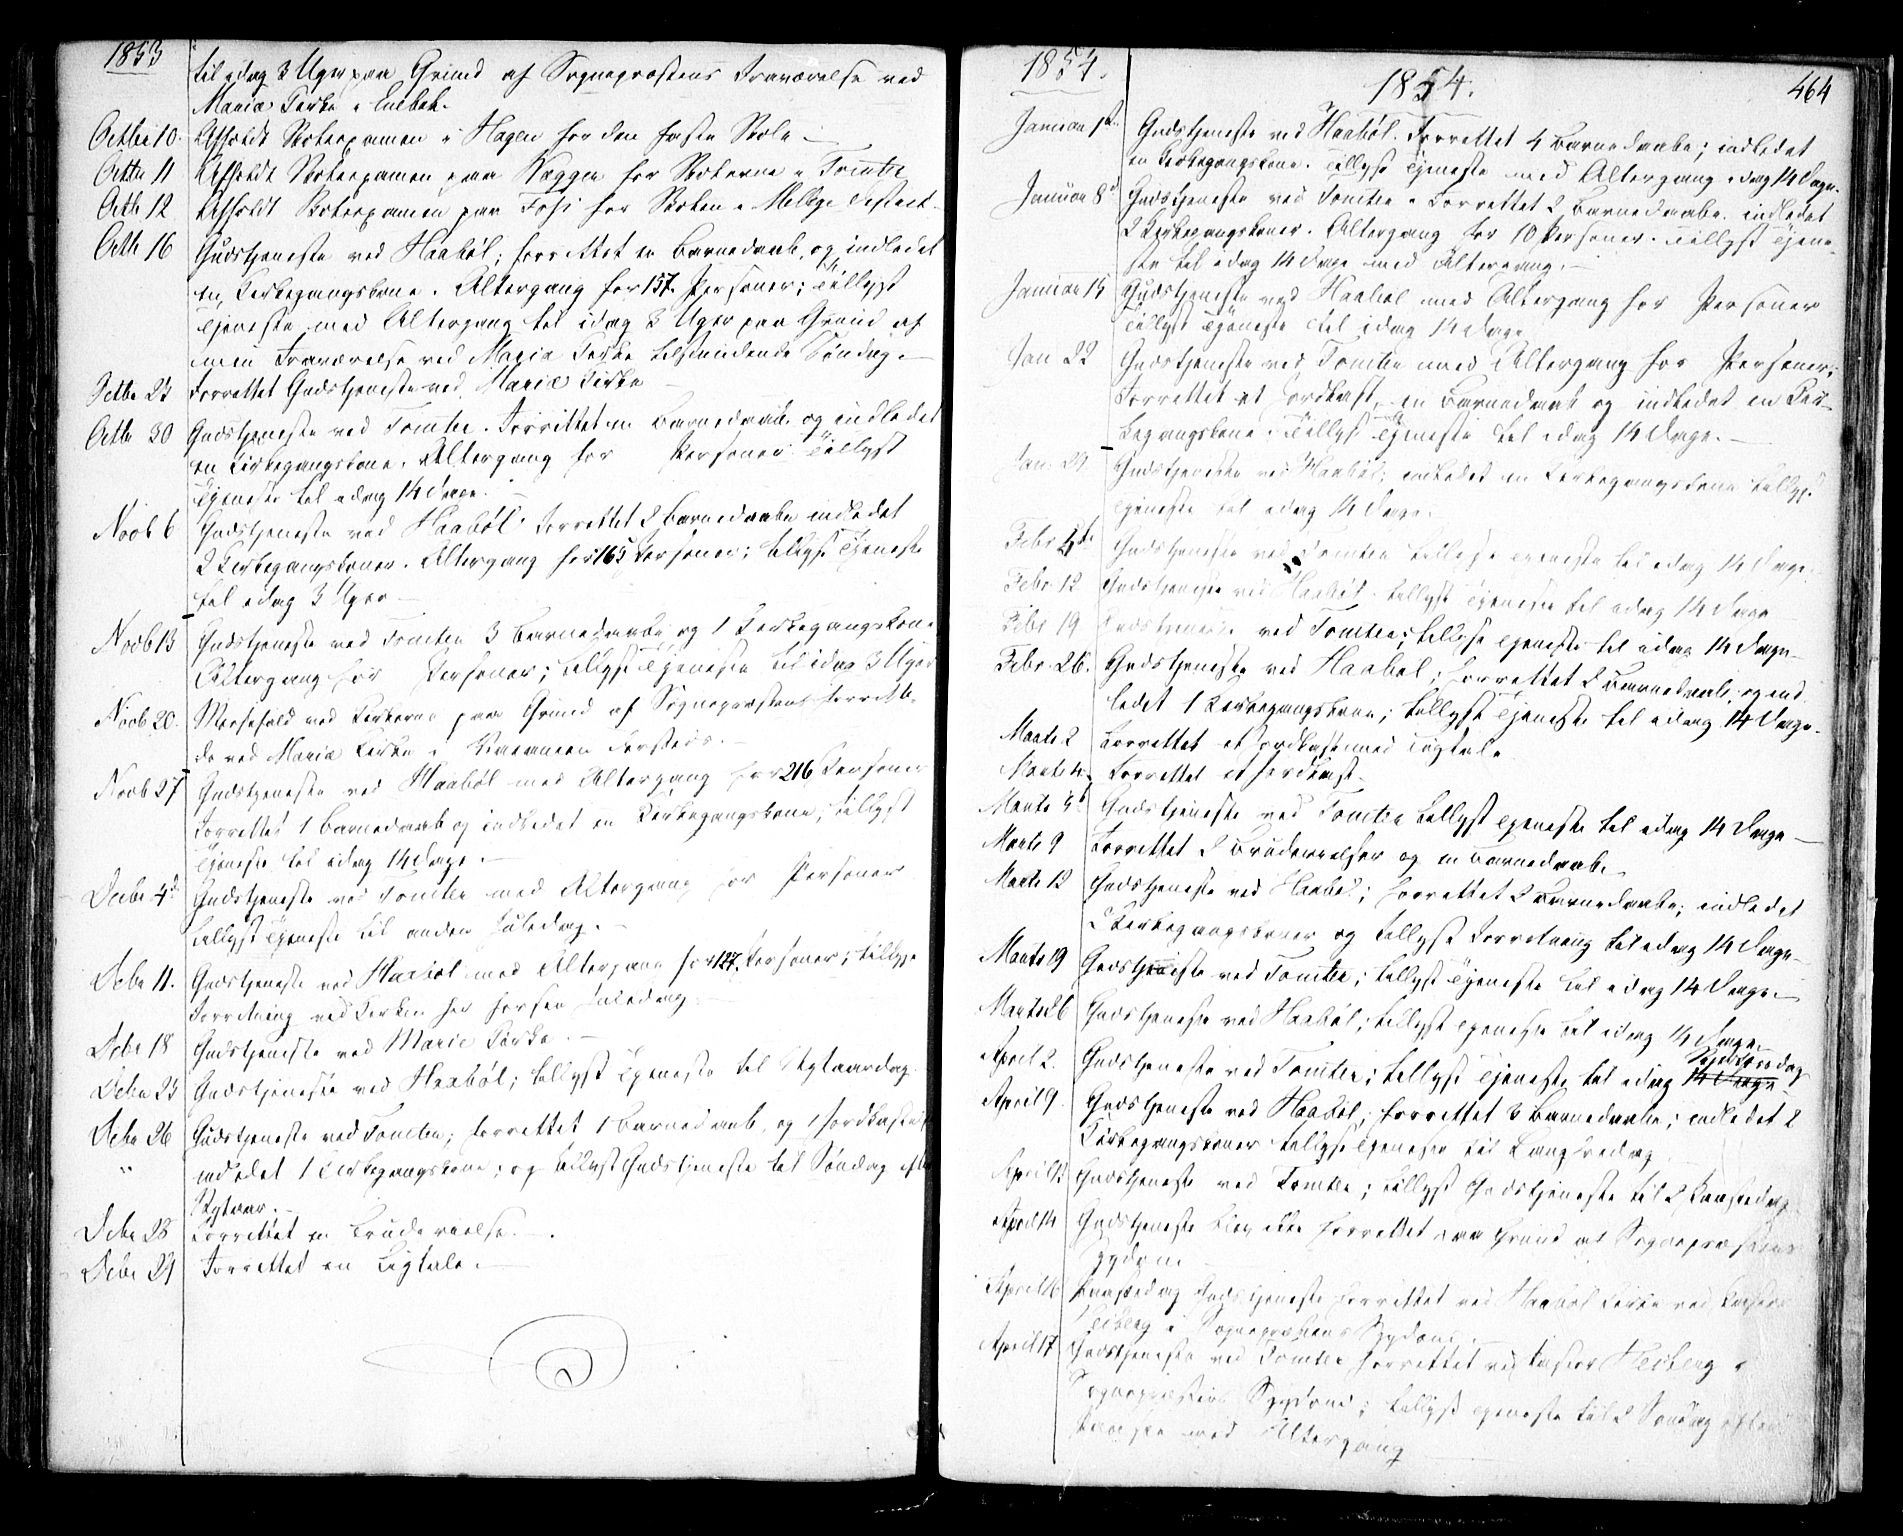 1853
til idag 3 Uger paa Grund af Sognepræstens Fraværelse ved
Maria Kirke i
Octbr 10. Afholdt Skoleexamen i Hagen for den faste Skole
Octbr 11 Afholdt Skoleexamen paa for Skolerne i Tomter
Octb 12 Afholdt Skoleexamen paa Foss for Skolen i District
Octb 16 Gudstjeneste ved Haabøl; forrettet en Barnedaab, og indledet
en Kirkegangskone. Altergang for 157 Personer; Tillyst
Tjeneste med Altergang til idag 3 Uger paa Grund af
min Fraværelse ved Maria Kirke tilstundende Søndag.
Octbr 23 Forrettet Gudstjeneste ved Mariæ Kirke
Octbr 30 Gudstjeneste ved Tomter. Forrettet en Barnedaab og indledet
en Kirkegangskone. Altergang for Personer. Tillyst
Tjeneste til idag 14 Dage.
Novb 6 Gudstjeneste ved Haabøl. Forrettet 2 Barnedaabe indledet
2 Kirkegangskoner. Altergang for 165 Personer; tillyst Tjeneste
til idag 3 Uger
Novb 13 Gudstjeneste ved Tomter 3 Barnedaabe og 1 Kirkegangskone
Altergang for Personer; tillyst Tjeneste til idag 3 Uger
Novb 20. Messefald ved Kirkerne paa Grund af Sognepræstens
de ved Maria Kirke i
Novb 27 Gudstjeneste ved Haabøl med Altergang for 216 Personer
Forrettet 1 Barnedaab og indledet en Kirkegangskone; tillyst
Tjeneste til idag 14 Dage.
Decbr 4d Gudstjeneste ved Tomter med Altergang for Personer
tillyst Tjeneste til anden Juledag.
Debr 11. Gudstjeneste ved Haabøl med Altergang for 127 Personer; tillyst
Forretning ved Kirken her første Juledag
Debr 18 Gudstjeneste ved Mariæ Kirke.
Debr 25 Gudstjeneste ved Haabøl; tillyst Tjeneste til Nytaarsdag
Debr 26 Gudstjeneste ved Tomter; forrettet 1 Barnedaab, og 1 Jordkastelse
" indledet 1 Kirkegangskone; og tillyst Gudstjeneste til Søndag efter
Nytaar.
Debr 28 Forrettet en Brudevielse.
Debr 29 Forrettet en Ligtale.
1854.
1854.
464
Januar 1ste Gudstjeneste ved Haabøl. Forrettet 4 Barnedaabe; indledet
en Kirkegangskone. Tillyst Tjeneste med Altergang idag 14 Dage.
Januar 8d Gudstjeneste ved Tomter. Forrettet 2 Barnedaabe. indledet
2 Kirkegangskoner. Altergang for 10 Personer. Tillyst Tjene-
ste til idag 14 Dage med Altergang.
Januar 15 Gudstjeneste ved Haabøl med Altergang for Personer
Tillyst Tjeneste til idag 14 Dage
Jan 22 Gudstjeneste ved Tomter med Altergang for Personer;
Forrettet et Jordkast, en Barnedaab og indledet en Kir-
kegangskone. Tillyst Tjeneste til idag 14 Dage.
Jan. 29 Gudstjeneste ved Haabøl; indledet en Kirkegangskone tillyst
Tjeneste til idag 14 Dage.
Febr Gudstjeneste ved Tomter tillyst Tjeneste til idag 14 Dage.
Febr 12 Gudstjeneste ved Haabøl. tillyst Tjeneste til idag 14 Dage
Febr 19 Gudstjeneste ved Tomter; tillyst Tjeneste til idag 14 Dage
Febr. 26. Gudstjeneste ved Haabøl; forrettet 2 Barnedaab; og ind
ledet 1 Kirkegangskone; tillyst Tjeneste til idag 14 Dage.
Marts 2 Forrettet et Jordkast med Ligtale
Marts 4. Forrettet et Jordkast.
Marts 5t Gudstjeneste ved Tomter tillyst Tjeneste til idag 14 Dage
Marts 9 Forrettet 2 Brudevielser og en Barnedaab.
Marts 12 Gudstjeneste ved Haabøl; forrettet 2 Barnedaabe; indledet
2 Kirkegangskoner og tillyst Forretning til idag 14 Dage
Marts 19 Gudstjeneste ved Tomter; tillyst Tjeneste til idag 14 Dage.
Marts 26 Gudstjeneste ved Haabøl; tillyst Tjeneste til idag 14 Dage.
April 2. Gudstjeneste ved Tomter; tillyst Tjeneste til idag 14 Dage Skjærtorsdag
April 9. Gudstjeneste ved Haabøl; forrettet 3 Barnedaabe; indledet 2
Kirkegangskoner tillyst Tjeneste til Langfredag
April 13 Gudstjeneste ved Tomter; tillyst Gudstjeneste til 2 Paaskedag
April 14 Gudstjeneste blev ikke forrettet paa Grund af Sognepræstens
Sygdom.
April 16 Paaskedag Gudstjeneste forrettet ved Haabøl Kirke ved Pastor
Heiberg i Sognepræstens Sygdom.
April 17 Gudstjeneste ved Tomter forrettet ved Pastor Heiberg i
Sognepræstens Sygdom; tillyst Tjeneste til 2 Søndag efter
Paaske med Altergang